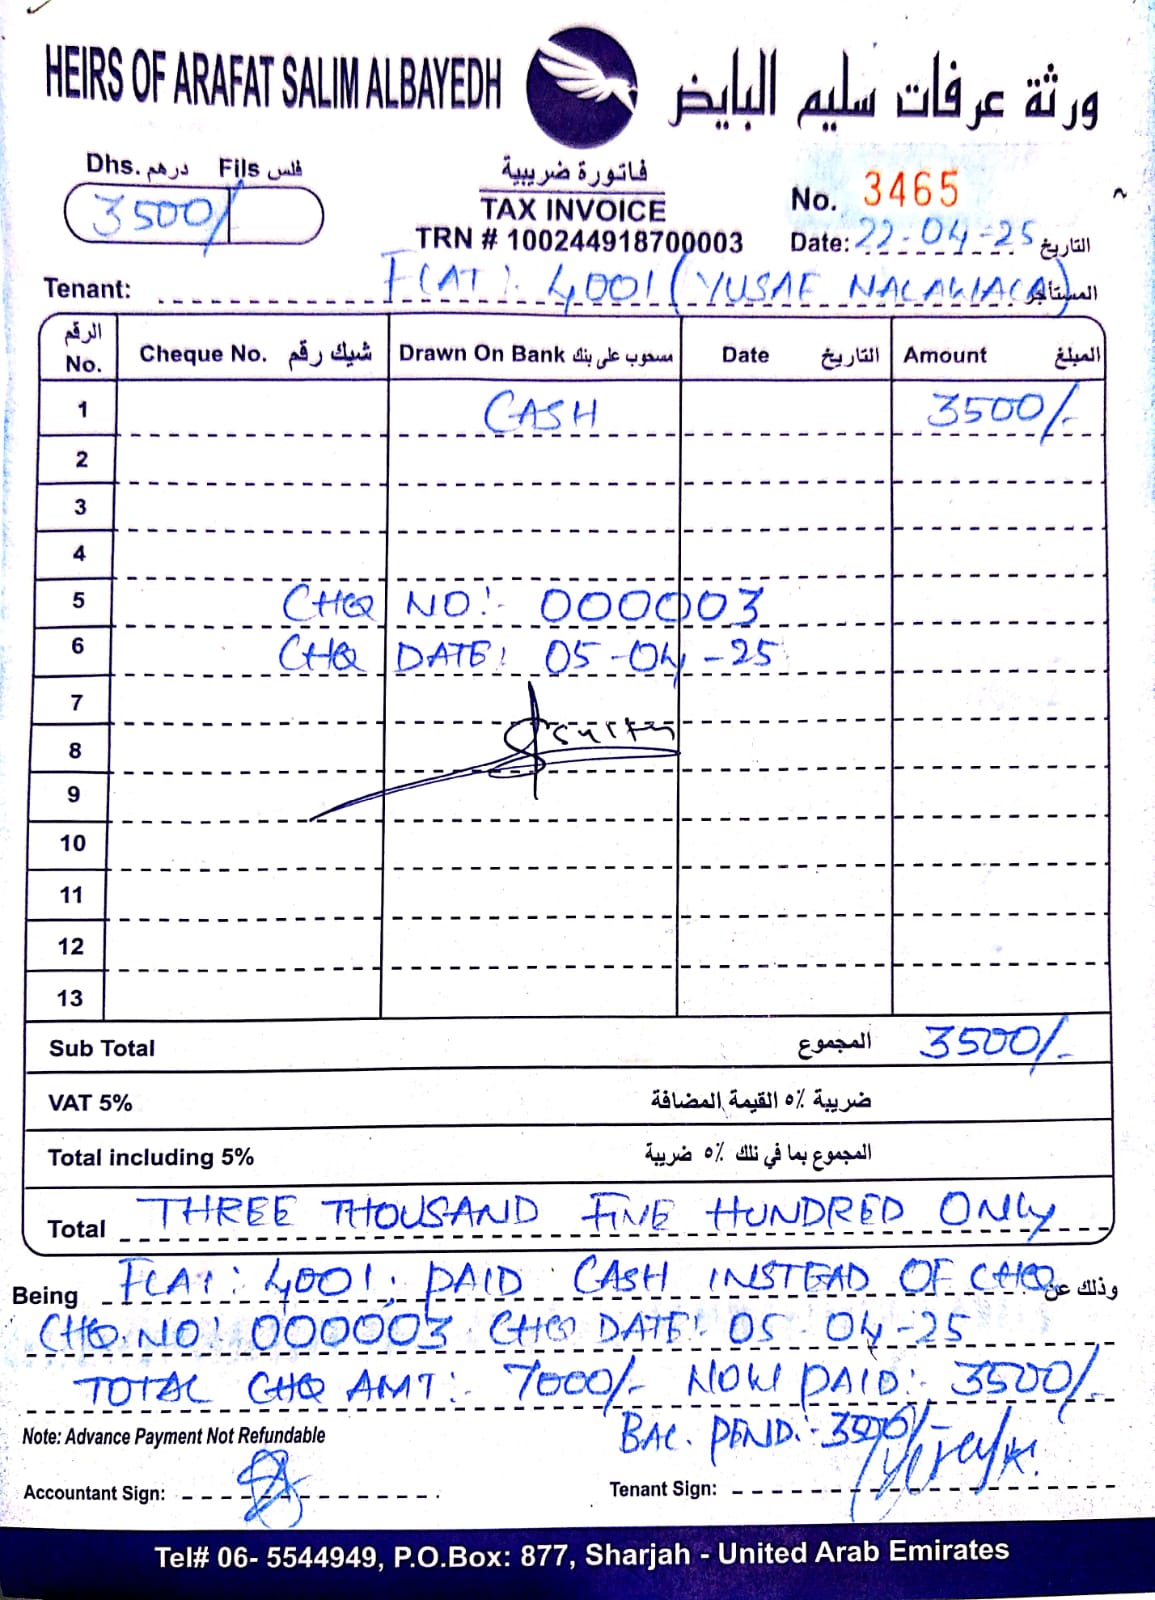 HEIRS OF ARAFAT SALIM ALBAYEDH
ورثة عرفات سليم البايض
Dhs. درهم Fils فلس
3500/
فاتورة ضريبية
TAX INVOICE
TRN # 100244918700003
No. 3465
Date: 22-04-25 التاريخ
Tenant: FLAT: 4001 (YUSAF NALAWALA) المستأجر
الرقم No. Cheque No. شيك رقم Drawn On Bank مسحوب على بنك Date التاريخ Amount المبلغ
1 CASH 3500/-
2
3
4
5 CHQ NO:- 000003
6 CHQ DATE: 05-04-25
7
8
9
10
11
12
13
Sub Total المجموع 3500/-
VAT 5% ضريبة ٥٪ القيمة المضافة
Total including 5% المجموع بما في ذلك ٥٪ ضريبة
Total THREE THOUSAND FIVE HUNDRED ONLY
Being FLAT: 4001, PAID CASH INSTEAD OF CHQ وذلك عن
CHQ.NO: 000003 CHQ DATE: 05-04-25
TOTAL CHQ AMT:- 7000/- NOW PAID:- 3500/-
BAL. PEND:- 3500/-
Note: Advance Payment Not Refundable
Accountant Sign:
Tenant Sign:
Tel# 06- 5544949, P.O.Box: 877, Sharjah - United Arab Emirates